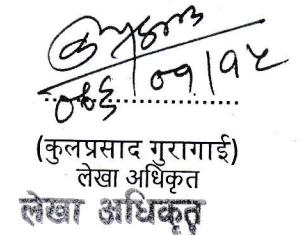 /०१/१५
(कुलप्रसाद गुरागाई)
लेखा अधिकृत
लेखा अधिकृत